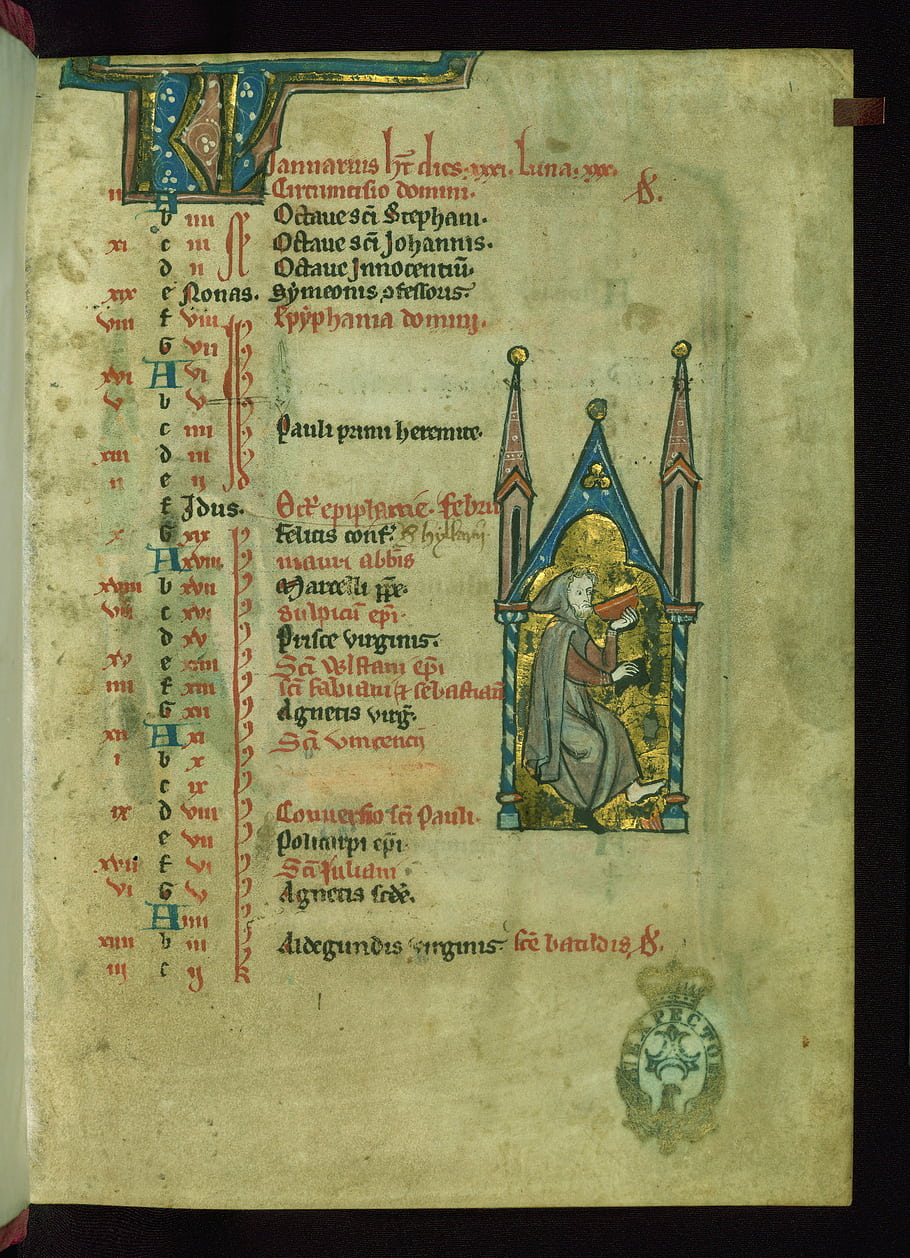 KL
Jannarius ht dies xxxi. Luna. xxx.
iii A Circumcisio domini.
b iiii Octaue sci Stephani.
xi c iii Octaue sci Johannis.
d ii Octaue Innocentiu.
xix e Nonas. Symeonis ꝯfessoris.
viii f viii Epyphania domini.
G vii
xvi A vi
v b v
c iiii Pauli primi heremite.
xiii d iii
ii e ii
f Idus. Oct' epiphanie. febru
x G xix Felicis conf. & hyllarii
A xviii mauri abbis
xviii b xvii Marcelli pp.
vii c xvi Sulpicii epi.
d xv Prisce virginis.
xv e xiiii Sci Wlstani epi
iiii f xiii sci fabiani & sebastiani
G xii Agnetis virg.
xii A xi Sci vincencij
i b x
c ix
ix d viii Conuersio sci Pauli.
e vii Policarpi epi.
xvii f vi Sci Juliani
vi G v Agnetis scde.
A iiii
xiiii b iii Aldegundis virginis sce batildis
iij c ij k
EXPECTO